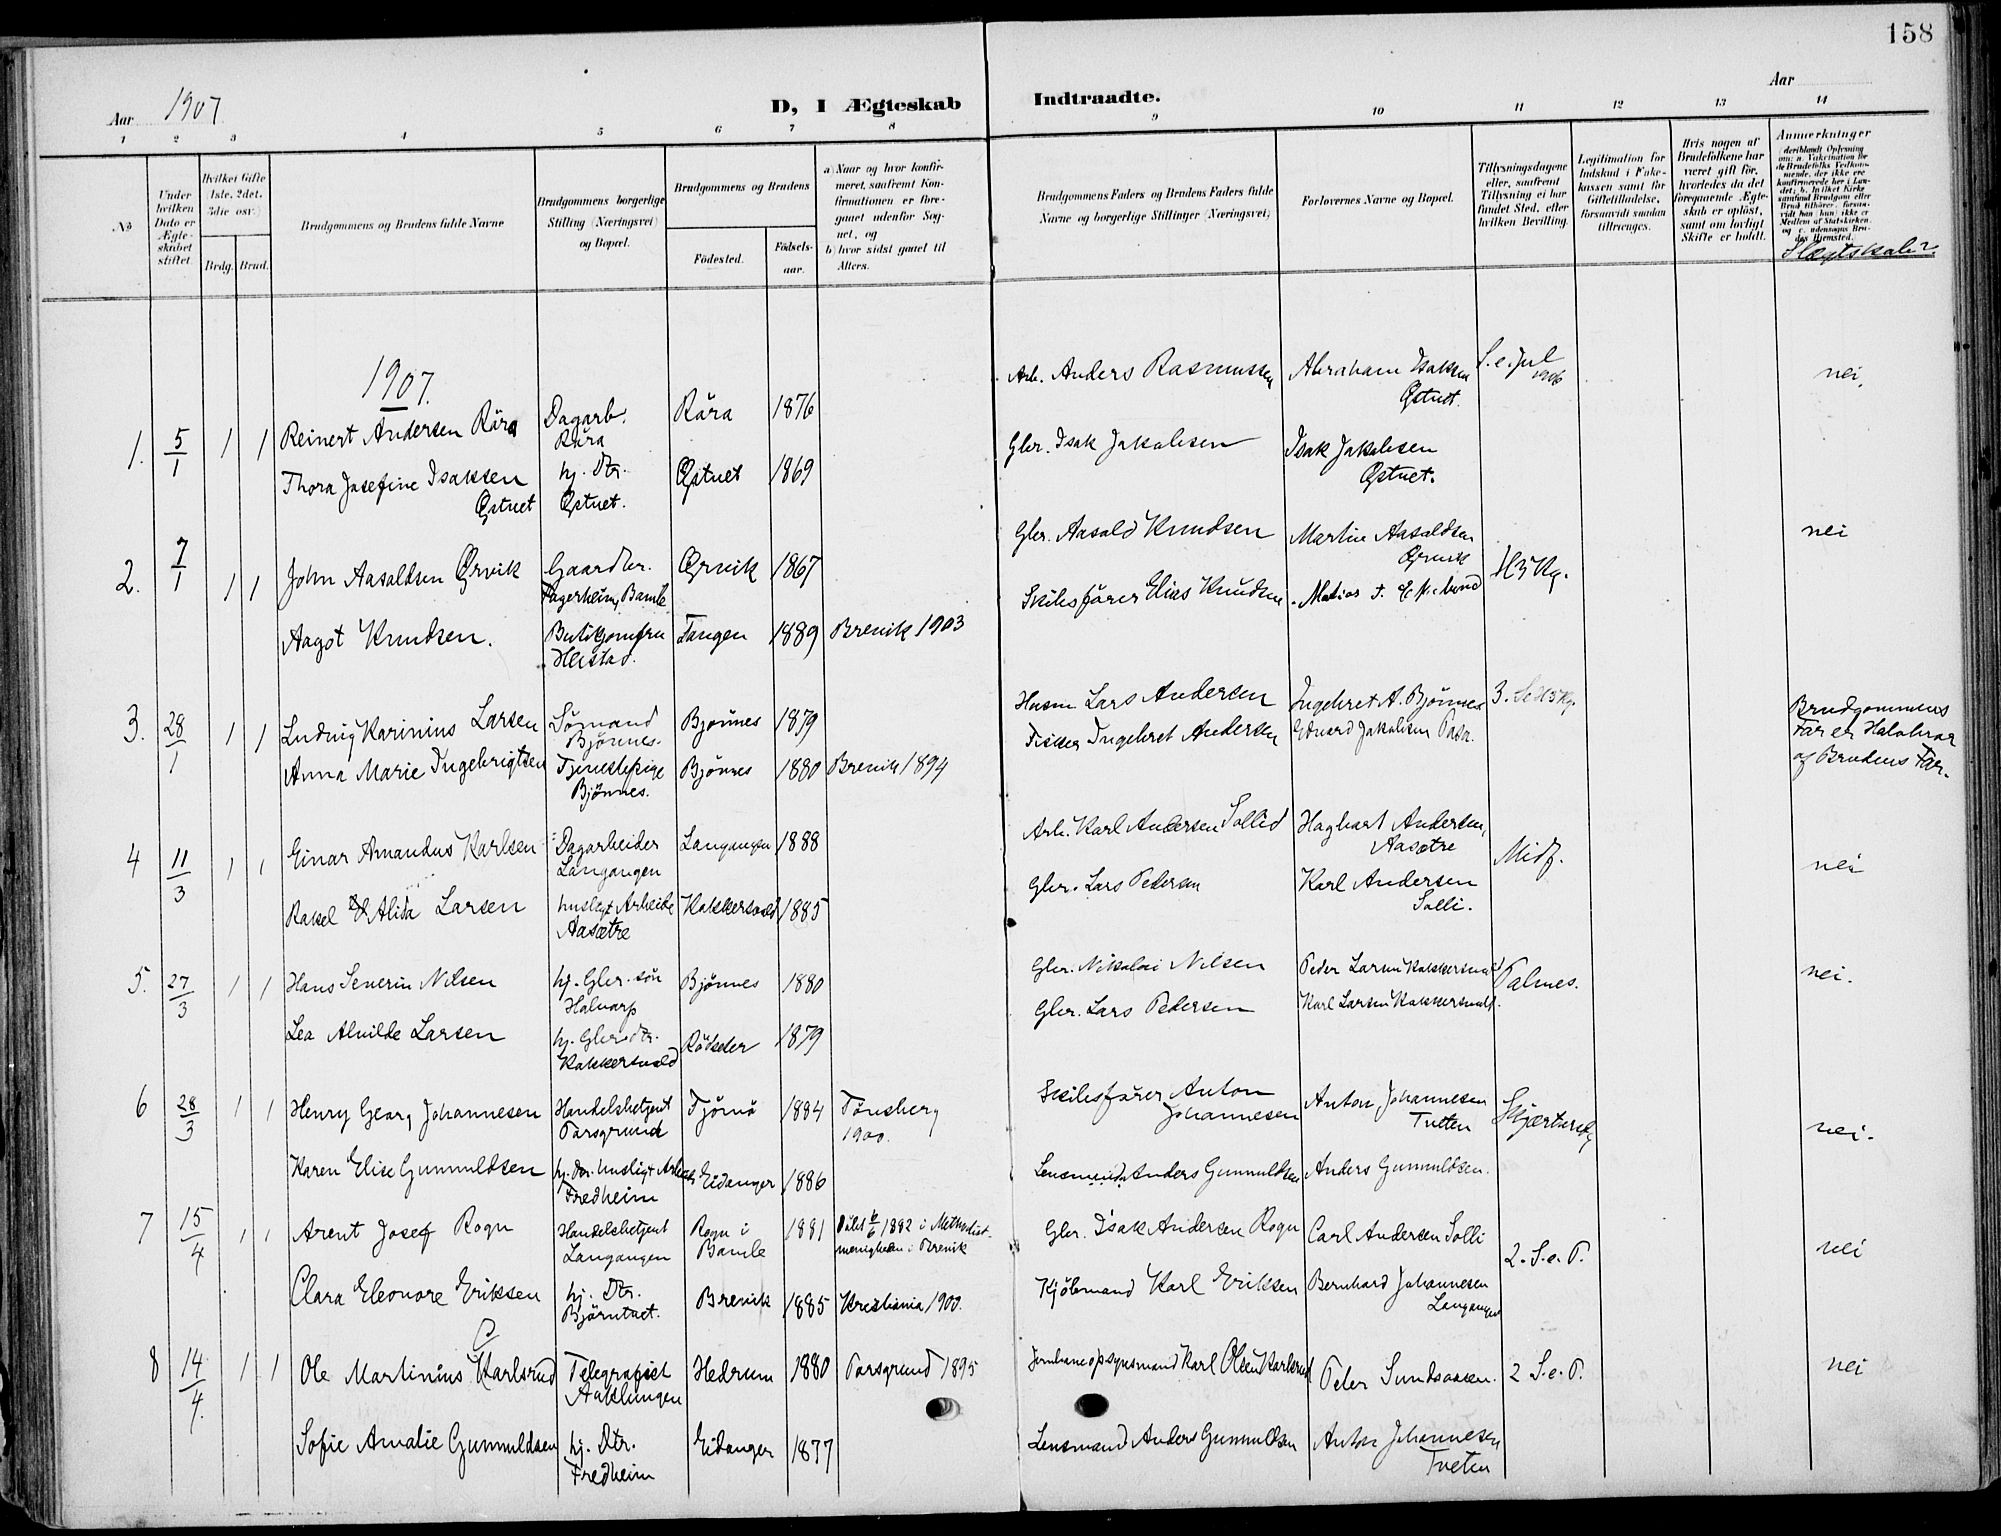 158
Aar 1907
D, I Ægteskab
Indtraadte.
Aar
1 2 3 4 5 6 7 8 9 10 11 12 13 14
No
Under hvilken Dato er Ægteskabet stiftet.
Hvilket Gifte 1ste, 2det, 3die osv.)
Brdg. Brud.
Brudgommens og Brudens fulde Navne
Brudgommens borgerlige Stilling (Næringsvei) og Bopæl.
Brudgommens og Brudens
Födested.
Födselsaar.
a) Naar og hvor konfirmeret, saafremt Konfirmationen er foregaaet udenfor Sognet, og
b) hvor sidst gaaet til Alters.
Brudgommens Faders og Brudens Faders fulde Navne og borgerlige Stillinger (Næringsvei)
Forlovernes Navne og Bopæl.
Tillysningsdagene eller, saafremt Tillysning ei har fundet Sted, efter hvilken Bevilling.
Legitimation for Indskud i Enkekassen samt for Giftetilladelse, forsaavidt saadan tiltrænges.
Hvis nogen af Brudefolkene har været gift før, hvorledes da det foregaaende Ægteskab er oplöst, samt om lovligt Skifte er holdt.
Anmerkninger
(deriblandt Oplysning om: a. Vakcination for de Brudefolks Vedkommende, der ikke ere konfirmerede her i Landet; b. hvilket Kirkesamfund Brudgom eller Brud tilhører, forsaavidt han (hun) ikke er Medlem af Statskirken, og c. udensogns Brudes Hjemsted.
Slægtskab?
1907.
1. 5/1 1 1 Reinert Andersen Råra Dagarb. Råra Råra 1876
Arb. Anders Rasmussen Abraham Isaksen Østvet. S. e. Jul 1906 nei.
Thora Josefine Isaksen Østvet hj. Dtr. Østvet. Østvet 1869
Gbr. Isak Jakobsen Isak Jakobsen Østvet.
2. 7/1 1 1 John Aasoldsen Ørvik Gaardbr. Fagerheim, Bamle Ørvik 1867
Gbr. Aasold Knudsen Martin Aasoldsen Ørvik H3Kg. nei
Aagot Knudsen. Butikjomfru Heistad. Tangen 1889 Brevik 1903
Skibsfører Elias Knudsen
3. 28/1 1 1 Ludvig Karinius Larsen Sömand Bjönnes. Bjönnes 1879
Husm Lars Andersen Ingebret A. Bjönnes 3. S e H3Kg. Brudgommens
Far er Halvbror
af Brudens Far.
Anna Marie Ingebrigtsen Tjenestepige Bjönnes. Bjönnes 1880 Brevik 1894
Fisker Ingebret Andersen Edvard Jakobsen
4 11/3 1 1 Einar Amandus Karlsen Dagarbeider Langangen Langangen 1888
Arb. Karl Andersen Sollid Hagbart Andersen, Aasætre Midf. nei
Rakel Alida Larsen husligt Arbeide Aasætre Kokkersvold 1885
Gbr. Lars Pedersen Karl Andersen Solli.
5. 27/3 1 1 Hans Severin Nilsen hj. Gbr. sön Halvarp Bjönnes 1880
Gbr. Nikolai Nilsen Peder Larsen Kokkersvold Palmes. nei.
Lea Alvilde Larsen hj. Gbr. dtr. Kokkersvold Rödseter 1879
Gbr. Lars Pedersen Karl Larsen Kokkersvold.
6 28/3 1 1 Henry Georg Johannesen Handelsbetjent Porsgrund Tjömö 1884 Tönsberg 1900.
Skibsfører Anton Johannesen Anton Johannesen Tveten Skjærtorsdg nei.
Karen Elise Gunnuldsen hj. Dtr. husligt Arbeide Fredheim Eidanger 1886
Lensmand Anders Gunnuldsen Anders Gunnuldsen.
7 15/4 1 1 Arent Josef Rogn Handelsbetjent Langangen Rogn i Bamle 1881 Döbt 6/6 1882 i Methodistmenigheden i Brevik
Gbr. Isak Andersen Rogn Carl Andersen Solli 2. S. e. P. nei
Clara Eleonore Eriksen hj. Dtr. Björntvet. Brevik 1885 Kristiania 1900.
Kjöbmand Karl Eriksen Bernhard Johannesen Langangen
8 14/4. 1 1 Ole Martinius Karlsrud Telegrafist Aaklungen Hedrum 1880 Porsgrund 1895
Jernbaneopsynsmand Karl Olsen Karlsrud Peter Sundsaasen. 2 S. e. P. nei
Sofie Amalie Gunnuldsen hj. Dtr. Fredheim Eidanger 1877
Lensmand Anders Gunnuldsen Anton Johannesen Tveten